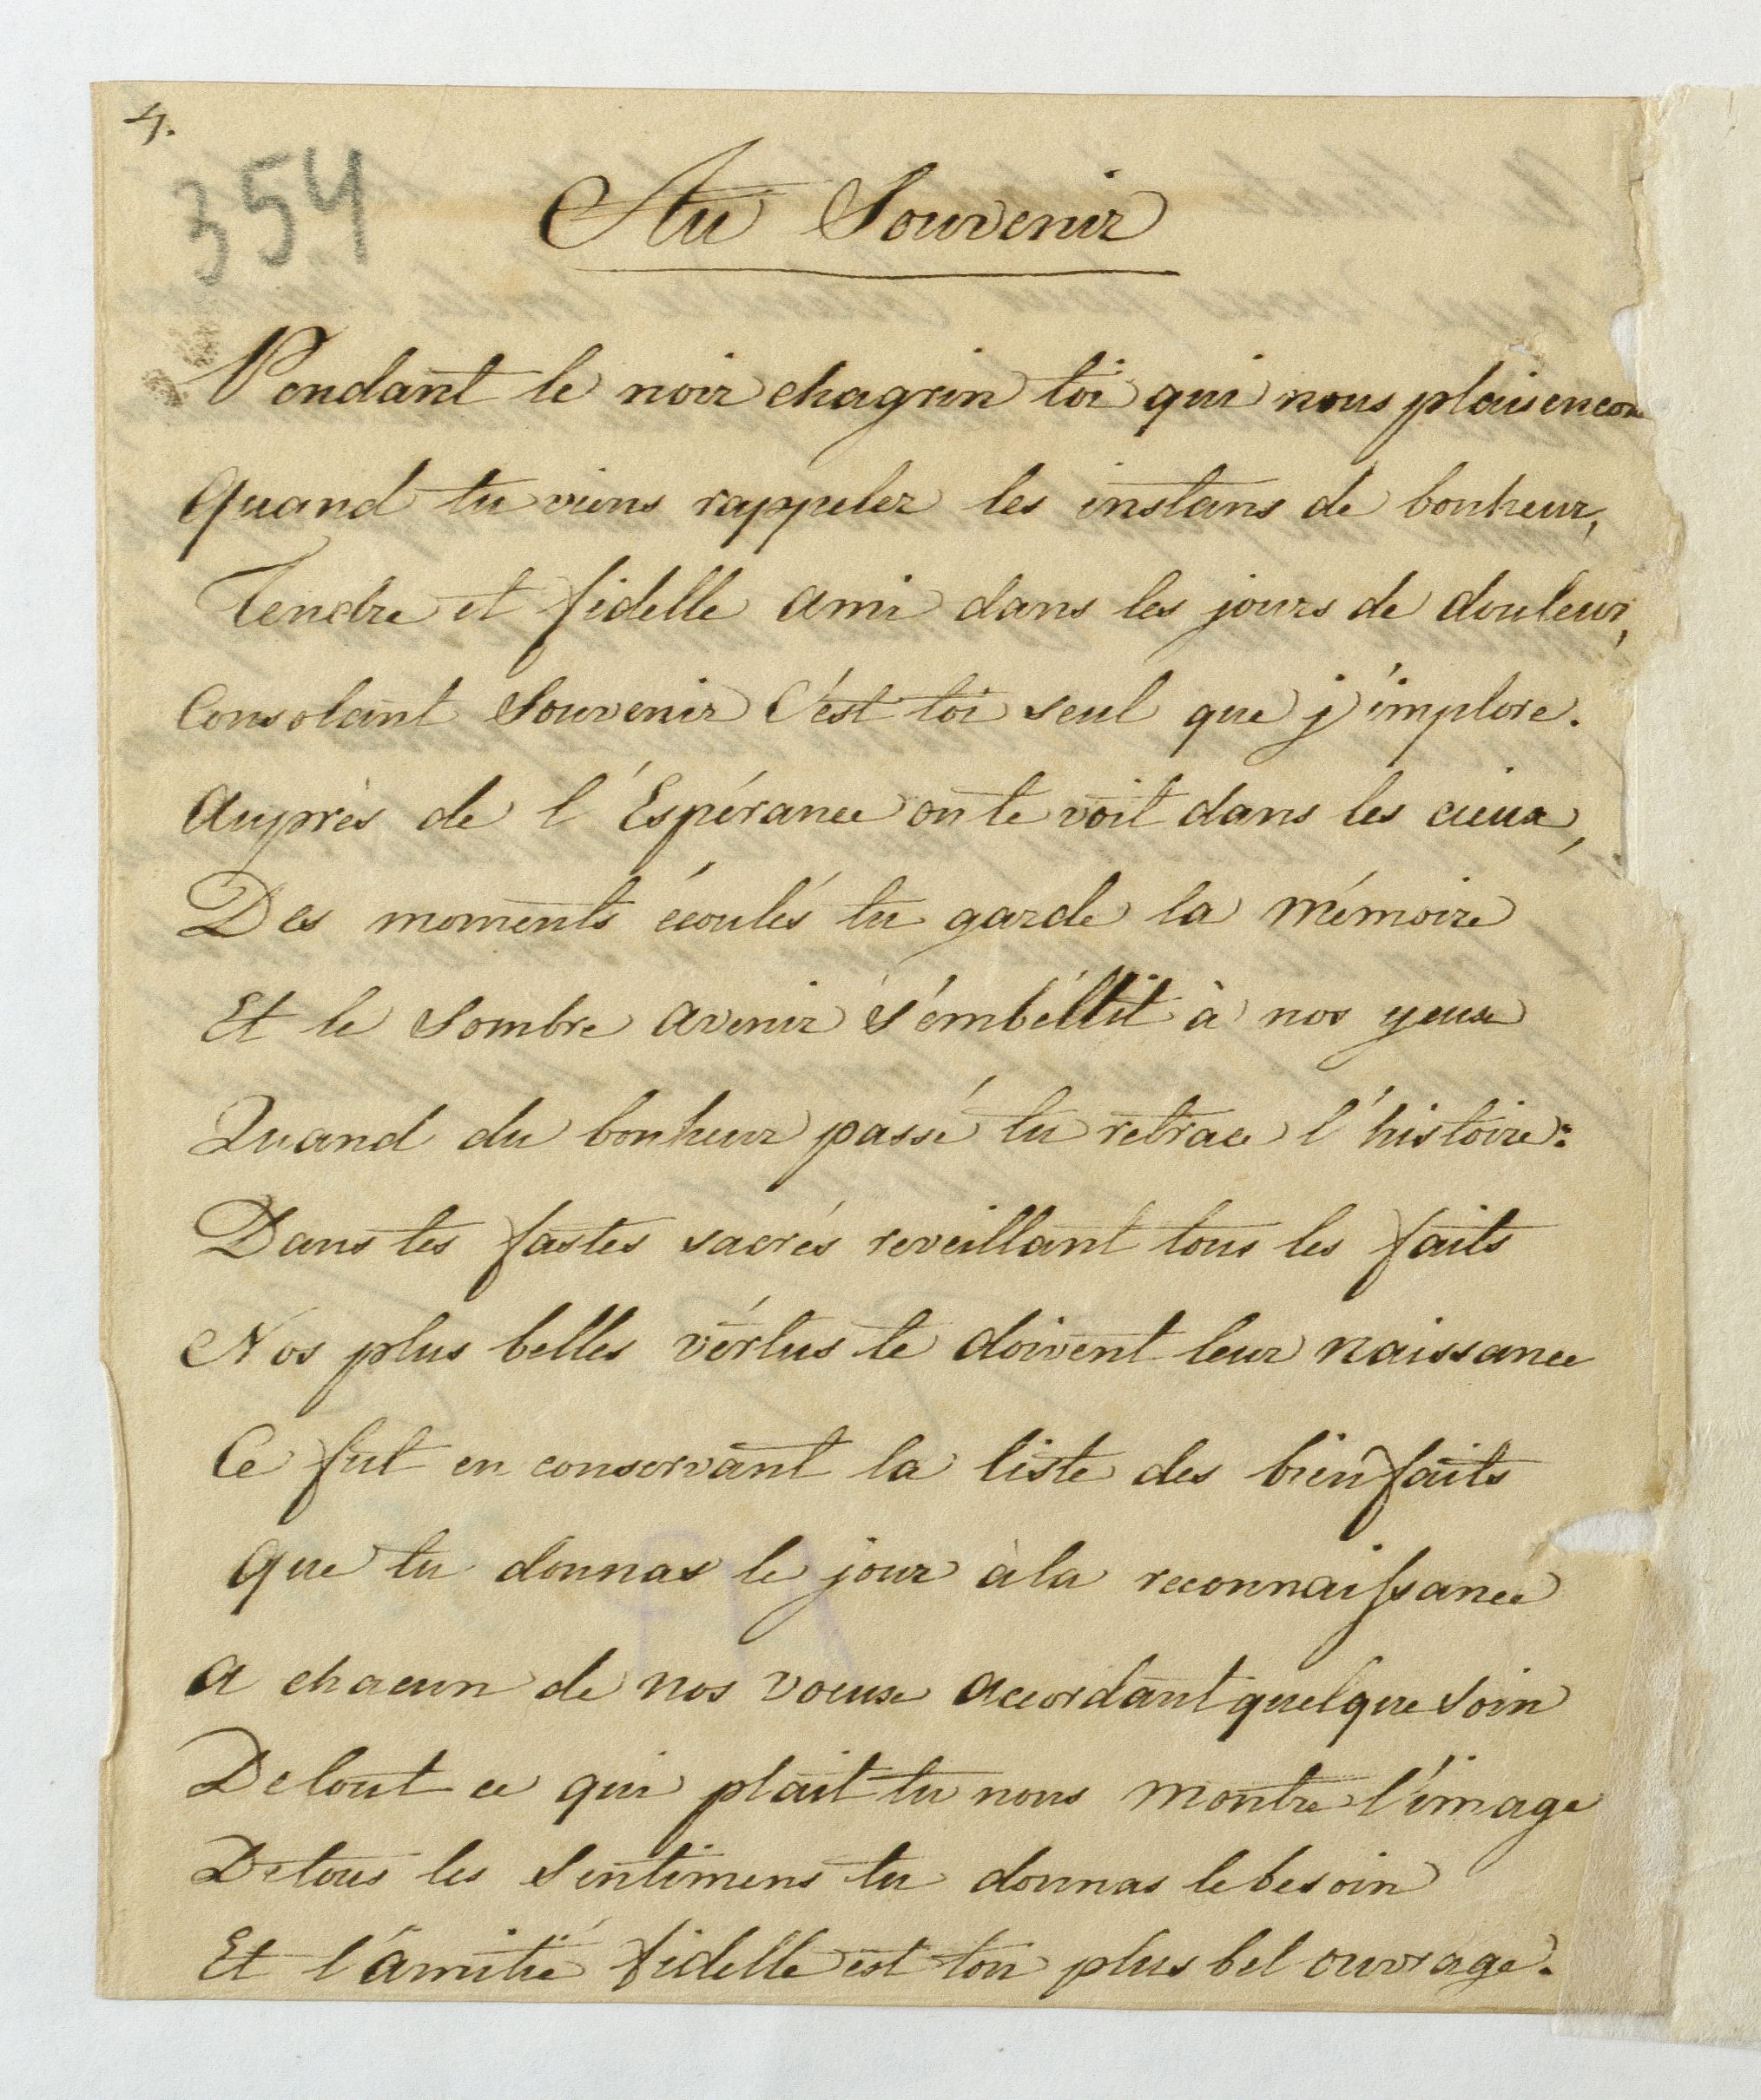 4.
354
Au Souvenir
Pendant le noir chagrin toi qui nous plais encore
Quand tu viens rappeler les instans de bonheur,
Tendre et fidelle ami dans les jours de douleur,
Consolant Souvenir C'est toi seul que j'implore.
Auprès de l'Espérance on te voit dans les cieux,
Des moments écoulés tu garde la mémoire
Et le Sombre avenir s'émbéllit à nos yeux
Quand du bonheur passé tu retrace l'histoire:
Dans tes fastes sacrés reveillant tous les faits
Nos plus belles vértus te doivent leur naissance
Ce fut en conservant la liste des bienfaits
Que tu donnas le jour à la reconnaissance
A chacun de nos voeux accordant quelque soin
De tout ce qui plait tu nous montre l'image
De tous les Sentimens tu donnas le besoin
Et l'amitié fidelle est ton plus bel ouvrage.